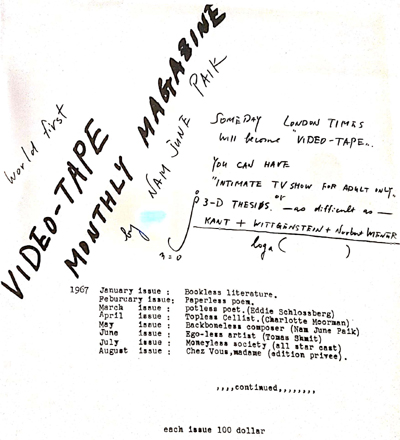 world first
VIDEO-TAPE
MONTHLY MAGAZINE
by NAM JUNE PAIK
SOMEDAY LONDON TIMES
will become "VIDEO-TAPE"..
YOU CAN HAVE
"INTIMATE TV SHOW FOR ADULT ONLY"
or
3-D THESIS. — as difficult as —
KANT + WITTGENSTEIN + Norbert WIENER
loga ( )
1967 January issue : Bookless literature.
Peburuary issue: Paperless poem.
March issue : potless poet.(Eddie Schlossberg)
April issue : Topless Cellist.(Charlotte Moorman)
May issue : Backboneless composer (Nam June Paik)
June issue : Ego-less artist (Tomas Shmit)
July issue : Moneyless society (all star cast)
August issue : Chez Vous,madame (edition privee).
,,,,continued,,,,,,,,
each issue 100 dollar